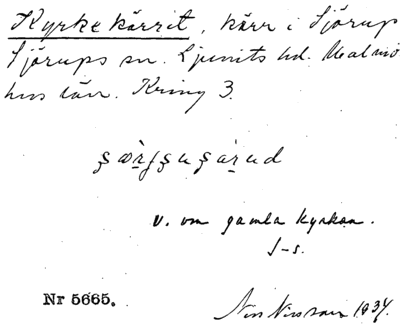 Kyrkekärrit, kärr i Sjörup
Sjörups sn. Ljunits hd. Malmö
hus län. Kring 3.
v. om gamla kyrkan.
S-s.
Nr 5665.
Nils Nilsson 1934.